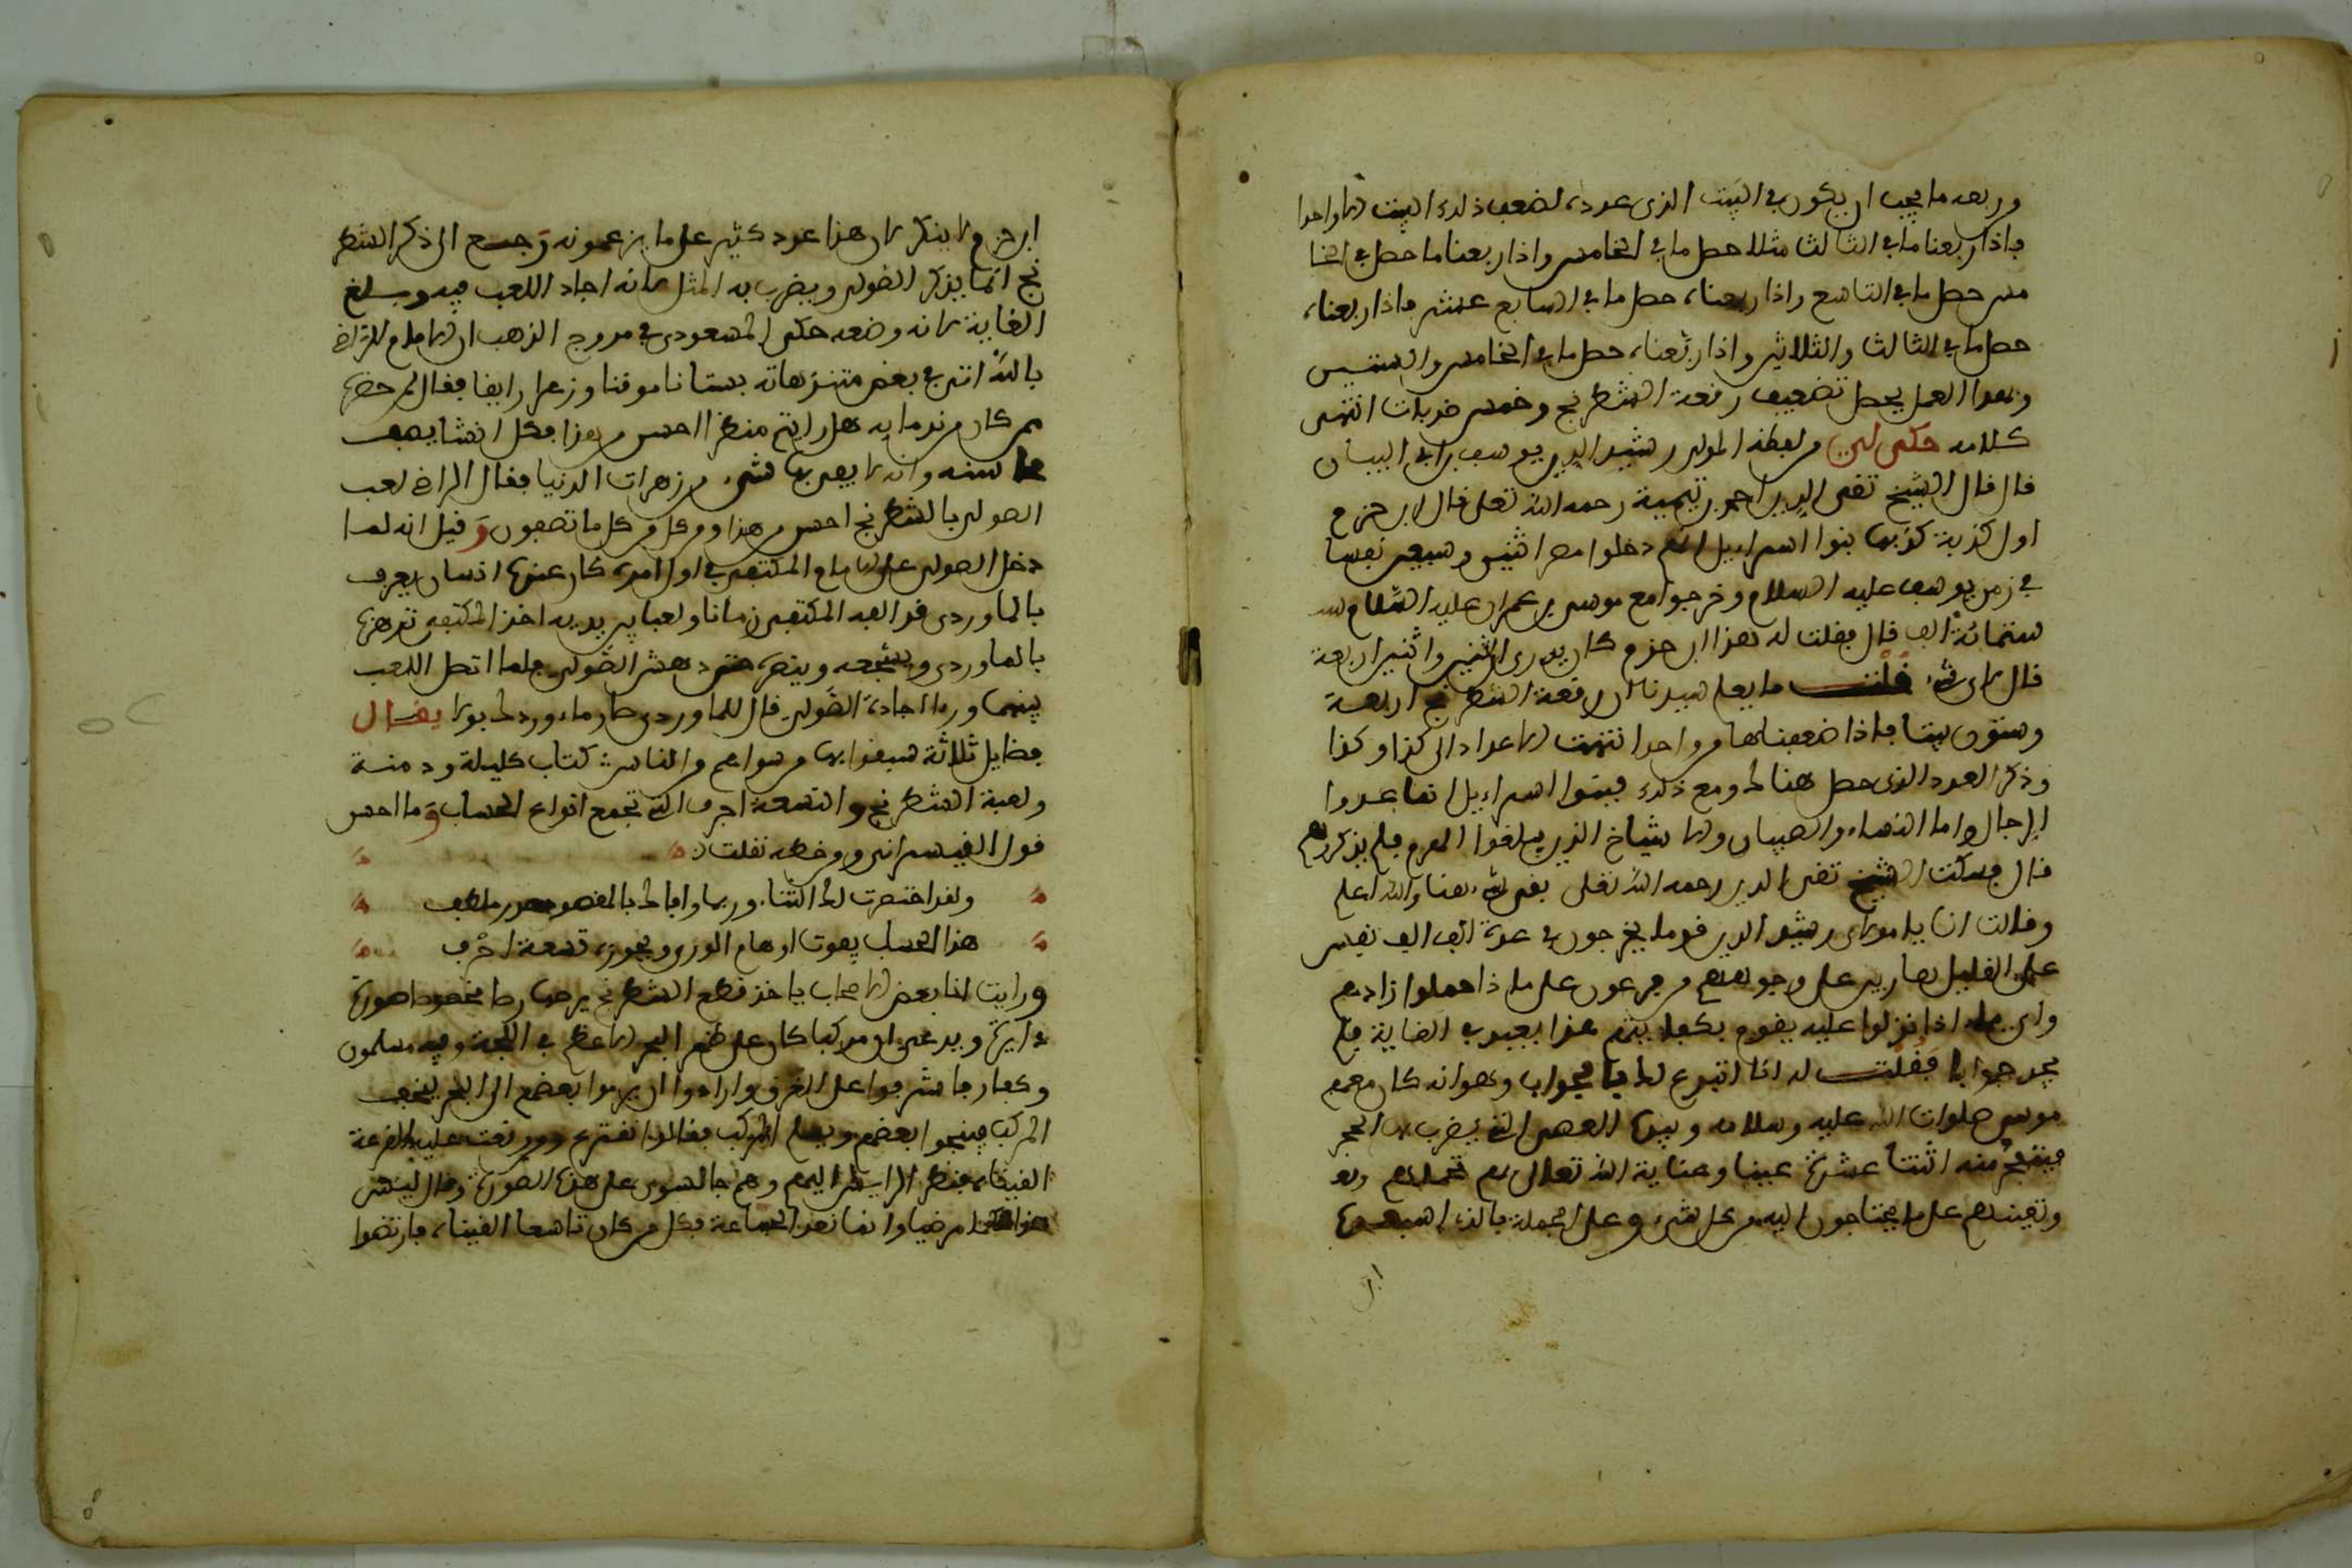 وربعه ما يجب ان يكون في البيت الذي عدده لضعف ذلك البيت الا واحدا
فاذا ربعنا ما في الثالث مثلا حصل ما في الخامس واذا ربعنا ما حصل في الخا
مس حصل ما في التاسع واذا ربعناه حصل ما في السابع عشر فاذا ربعناه
حصل ما في الثالث والثلاثين واذا ربعناه حصل ما في الخامس والستين
وبهذا العمل يحصل تضعيف رقعة الشطرنج وخمس ضربات انتهى
كلامه حكى لي من لفظه المولى رشيد الدين يوسف بن ابي البيان
قال قال الشيخ تقي الدين احمد بن تيمية رحمه الله تعلى قال ابن حزم
اول كذبة كذبها بنوا اسراءيل انهم دخلوا مصر اثنين وسبعين نفسا
في زمن يوسف عليه السلام وخرجوا مع موسى بن عمران عليه السلام
ستمائة الف قال فقلت له هذا ابن حزم كان يدري اثنين واثنين اربعة
قال لاي شيء قلت ما يعلم سيدنا ان رقعة الشطرنج اربعة
وستون بيتا فاذا ضعفناها من واحد انتهت الاعداد الى كذا وكذا
وذكر العدد الذي حصل هناك ومع ذلك فبنوا اسراءيل انما عدوا
الرجال واما النساء والصبيان والاشياخ الذين بلغوا الهرم فلم يذكروهم
قال فسكت الشيخ تقي الدين رحمه الله تعلى بقي شيء هنا والله اعلم
وقالت انا يا مولاي رشيد الدين قوما يخرجون في عدة الف الف نفس
على القليل هاربين على وجوههم من فرعون على ماذا حملوا زادهم
واي ماء اذا نزلوا عليه يقوم بكفايتهم هذا بعيد في الغاية فلم
يجد جوابا فقلت له انا اتبرع لك بالجواب وهو انه كان معهم
موسى صلوات الله عليه وسلامه وبيده العصى التي يضرب بها الحجر
فينفجر منه اثنتا عشرة عينا وعناية الله تعالى بهم تحملهم
وتعينهم على ما يحتاجون اليه من كل شيء وعلى الجملة فالذي استبعده
ابن
ابن حزم لا ينكر لان هذا عدد كثير على ما يزعمونه رجع الى ذكر الشطر
نج انما يذكر الصولي ويضرب به المثل لانه اجاد اللعب فيه وبلغ
الغاية لا انه وضعه حكى المسعودي في مروج الذهب ان الامام الراضي
بالله اتى في بعض متنزهاته بستانا مونقا وزهرا رايقا فقال لمن حضره
ممن كان من ندمايه هل رايتم منظرا احسن من هذا فكل انشا يصف
محاسنه وانه لا يفي بها شيء من زهرات الدنيا فقال الراضي لعب
الصولي بالشطرنج احسن من هذا ومن كل ما تصفون وقيل انه لما
دخل الصولي على الامام المكتفي في اول امره كان عنده انسان يعرف
بالماوردي قد الفه المكتفي زمانا ولعبا بين يديه اخذ المكتفي تعرضه
بالماوردي ويشجعه وينصره حتى دهش الصولي فلما اتصل اللعب
بينهما وراا اجادة الصولي قال للماوردي صار ماء وردك بولا يقال
فضايل ثلاثة سبقوا بها من سواهم والناس كتاب كليلة ودمنة
ولعبة الشطرنج والتسعة احرف التي تجمع انواع الحساب وما احسن
قول القيسراني ومن خطه نقلت
ولقد اختصرت لك الثنا وربما وافاك بالمقصود
هذا الحساب يفوت اوهام الورى ويحوزه تسعة احرف
ورايت انا بعض الاصحاب ياخذ قطع الشطرنج يرصها رصا مخصوصا صورة
دايرة ويدعي ان مركبا كان على ظهر البحر الاعظم في اللجة وفيه مسلمون
وكفار فاشرفوا على الغرق وارادوا ان يرموا بعضهم الى البحر ليخف
المركب فينجوا بعضهم ويسلم المركب فقالوا نقترع ومن وقعت عليه القرعة
القيناه فنظر الرايس اليهم وهم جالسون على هذه الصورة وقال ليس
هذا حكما مرضيا وانما نعد الجماعة فكل من كان تاسعا القيناه فارتضوا